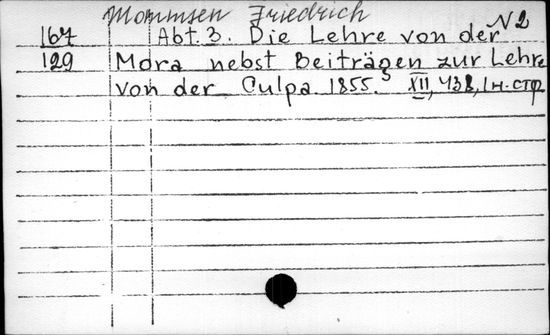 Mommsen Friedrich N2
167 Abt. 3. Die Lehre von der
129 Mora nebst Beiträgen zur Lehre
von der Culpa. 1855. XII, 438, 1 н. стр